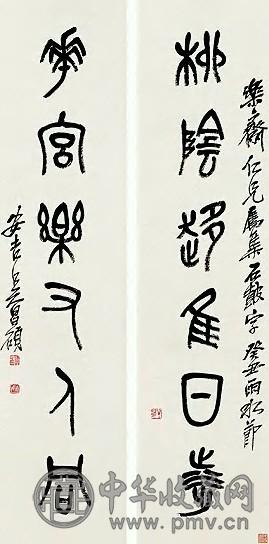 樂齋仁兄屬集石鼓字癸丑雨水節
柳陰趍隹日
宮樂又人
安吉吳昌碩
中华收藏网
www.pmv.cn